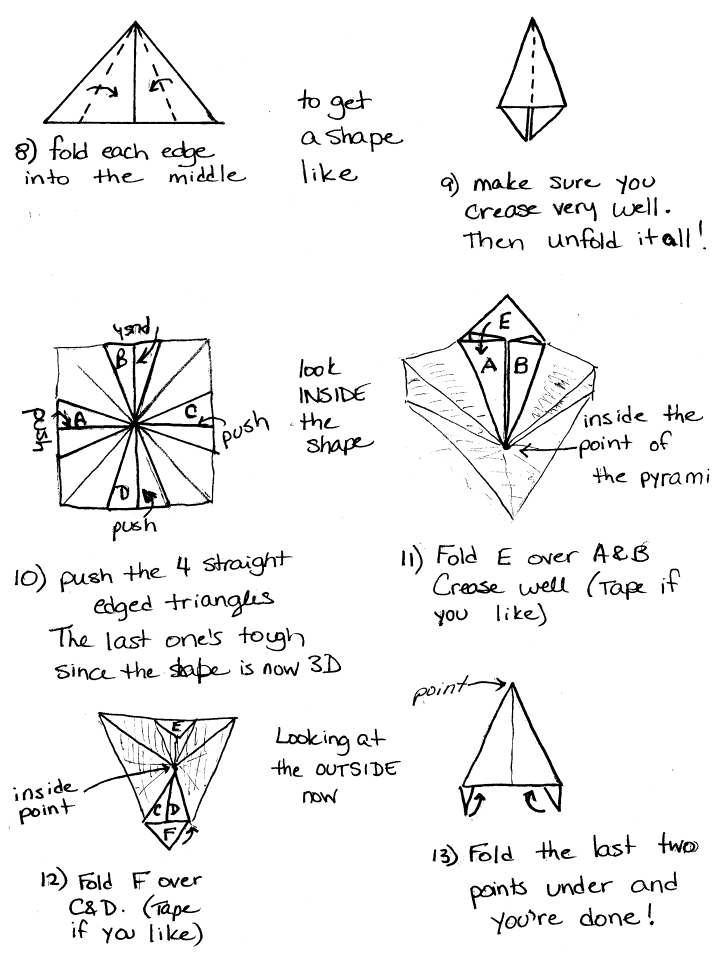 8) fold each edge
into the middle
to get
a shape
like
9) make sure you
crease very well.
Then unfold it all!
push
B
push
A
C
push
D
push
10) push the 4 straight
edged triangles
The last one's tough
since the shape is now 3D
look
INSIDE
the
shape
E
A
B
inside the
point of
the pyrami
11) Fold E over A&B
Crease well (Tape if
you like)
E
inside
point
C
D
F
12) Fold F over
C&D. (Tape
if you like)
Looking at
the OUTSIDE
now
point
13) Fold the last two
points under and
you're done!